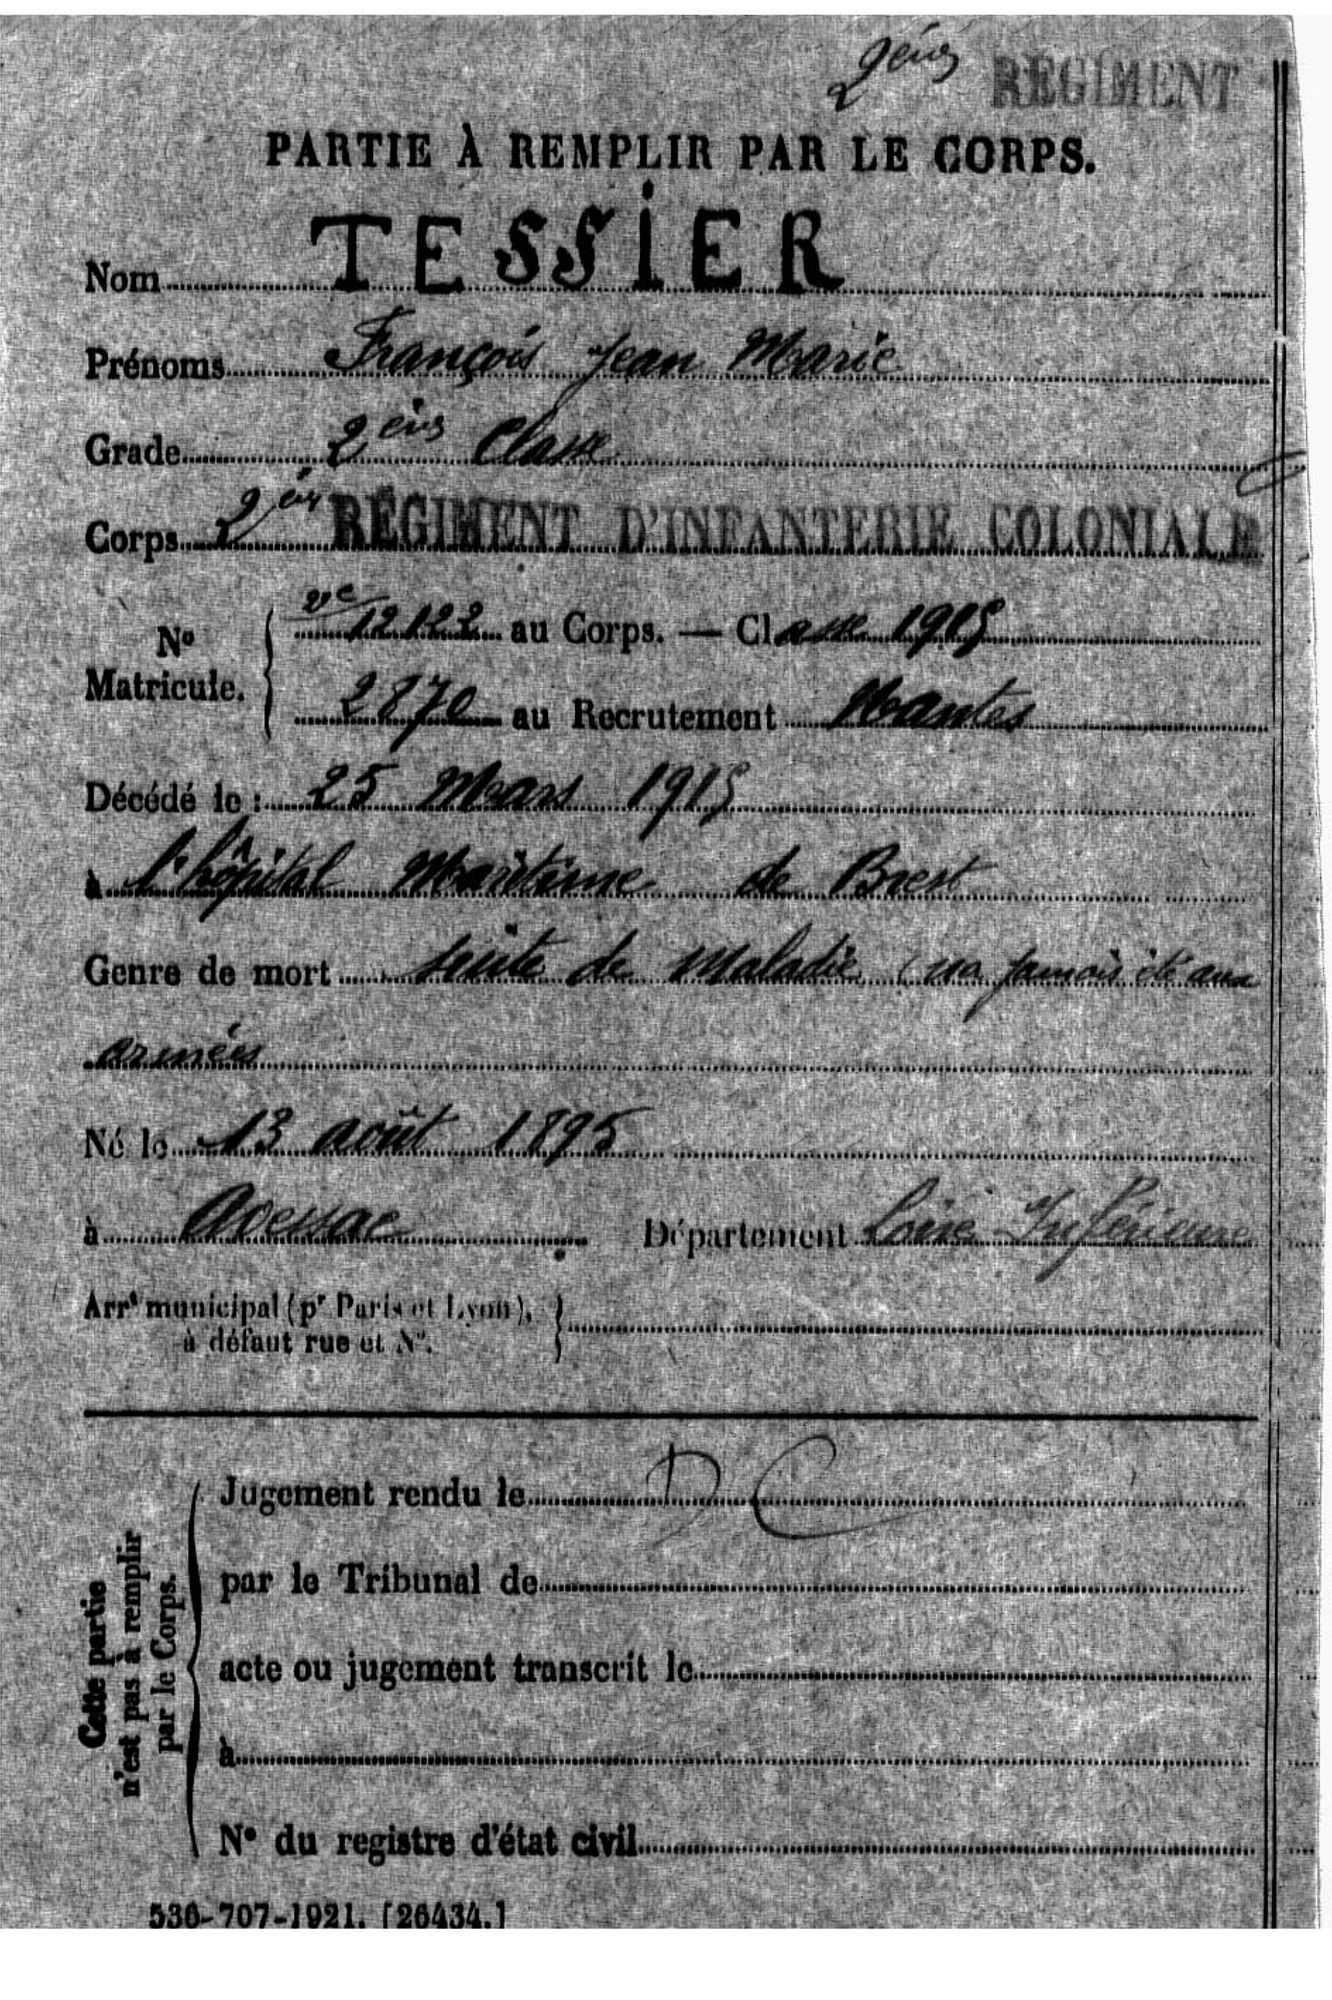 2ème REGIMENT
PARTIE À REMPLIR PAR LE CORPS.
Nom TESSIER
Prénoms François Jean Marie
Grade 2ème Classe
Corps 2ème RÉGIMENT D'INFANTERIE COLONIALE
No Matricule. 12122 au Corps. — Classe 1915
2870 au Recrutement Nantes
Décédé le : 25 Mars 1915
à l'hôpital Maritime de Brest
Genre de mort suite de Maladie (na jamais été aux
armées
Né le 13 août 1895
à Avessac Département Loire-Inférieure
Arrt municipal (pr Paris et Lyon),
à défaut rue et No.
Jugement rendu le D C
par le Tribunal de
acte ou jugement transcrit le
à
No du registre d'état civil
Cette partie
n'est pas à remplir
par le Corps.
536-707-1921. [26434.]